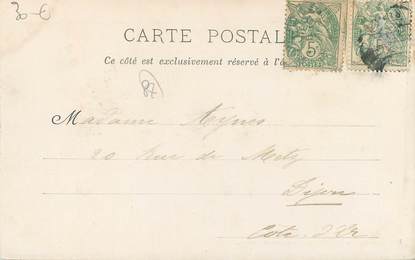 30 €
CARTE POSTAL
Ce côté est exclusivement réservé à l'a
5
87
Madame Aynès
20 Rue de Metz
Dijon
Cote d'Or